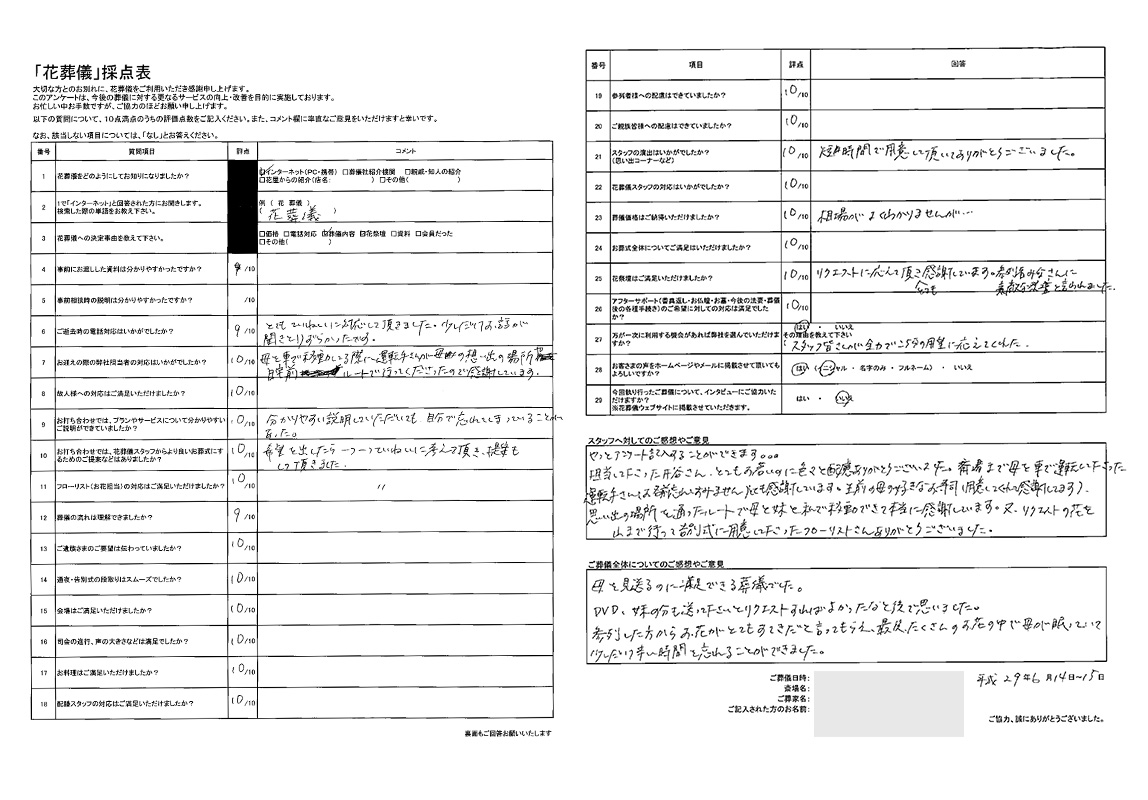 「花葬儀」採点表
大切な方とのお別れに、花葬儀をご利用いただき感謝申し上げます。
このアンケートは、今後の葬儀に対する更なるサービスの向上・改善を目的に実施しております。
お忙しい中お手数ですが、ご協力のほどお願い申し上げます。
以下の質問について、10点満点のうちの評価点数をご記入ください。また、コメント欄に率直なご意見をいただけますと幸いです。
なお、該当しない項目については、「なし」とお答えください。
番号 質問項目 評点 コメント
1 花葬儀をどのようにしてお知りになりましたか? ☑インターネット(PC・携帯) □葬儀社紹介機関 □親戚・知人の紹介
□花屋からの紹介(店名: ) □その他( )
2 1で「インターネット」と回答された方にお聞きします。
検索した際の単語をお教え下さい。 例(花 葬儀)
( 花葬儀 )
3 花葬儀への決定事由を教えて下さい。 □価格 □電話対応 ☑葬儀内容 ☑花祭壇 □資料 □会員だった
□その他( )
4 事前にお渡しした資料は分かりやすかったですか? 9/10
5 事前相談時の説明は分かりやすかったですか? /10
6 ご逝去時の電話対応はいかがでしたか? 9/10 とてもていねいに対応して頂きました。少しだけお話が
聞きとりずらかったです。
7 お迎えの際の弊社担当者の対応はいかがでしたか? 10/10 母と車で移動している際に運転手さんが母の想い出の場所
ルートで行ってくださったので感謝しています。
8 故人様への対応はご満足いただけましたか? 10/10
9 お打ち合わせでは、プランやサービスについて分かりやすい
ご説明ができていましたか? 10/10 分かりやすい説明していただいても、自分で忘れてしまっていることが
あった。
10 お打ち合わせでは、花葬儀スタッフからより良いお葬式にす
るためのご提案などはありましたか? 10/10 希望を出したら一つ一つていねいに考えて頂き、提案も
して頂きました。
11 フローリスト(お花担当)の対応はご満足いただけましたか? 10/10 〃
12 葬儀の流れは理解できましたか? 9/10
13 ご遺族さまのご要望は伝わっていましたか? 10/10
14 通夜・告別式の段取りはスムーズでしたか? 10/10
15 会場はご満足いただけましたか? 10/10
16 司会の進行、声の大きさなどは満足でしたか? 10/10
17 お料理はご満足いただけましたか? 10/10
18 配膳スタッフの対応はご満足いただけましたか? 10/10
裏面もご回答お願いいたします
番号 項目 評点 回答
19 参列者様への配慮はできていましたか? 10/10
20 ご親族皆様への配慮はできていましたか? 10/10
21 スタッフの演出はいかがでしたか?
(思い出コーナーなど) 10/10 短時間で用意して頂いてありがとうございました。
22 花葬儀スタッフの対応はいかがでしたか? 10/10
23 葬儀価格はご納得いただけましたか? 10/10 相場がよくわかりませんが…
24 お葬式全体についてご満足はいただけましたか? 10/10
25 花祭壇はご満足いただけましたか? 10/10 リクエストに応えて頂き感謝しています。参列者の皆さんに
とても 素敵な祭壇と言われました。
26 アフターサポート(香典返し・お仏壇・お墓・今後の法要・葬儀
後の各種手続き)のご希望に対しての対応は満足でした
か? 10/10
27 万が一次に利用する機会があれば弊社を選んでいただけま
すか? はい ・ いいえ
その理由を教えて下さい
(スタッフ皆さんが全力でこちらの用望に応えてくれた。
28 お客さまの声をホームページやメールに掲載させて頂いても
よろしいですか? はい (イニシャル ・ 名字のみ ・ フルネーム) ・ いいえ
29 今回執り行ったご葬儀について、インタビューにご協力いた
だけますか?
※花葬儀ウェブサイトに掲載させていただきます。 はい ・ いいえ
スタッフへ対してのご感想やご意見
やっとアンケート記入することができます。。。
担当して下さった さん、とてもお若いのに色々と配慮ありがとうございました。斎場まで母と車で運転して下さった
運転手さんには とても感謝しています。生前の母の好きなお寿司用意してくれて感謝してます)
思い出の場所を通ったルートで母と妹と私で移動できて本当に感謝しています。又、リクエストの花を
山まで行って告別式に用意して下さったフローリストさんありがとうございました。
ご葬儀全体についてのご感想やご意見
母を見送るのに満足できる葬儀でした。
DVD、妹の分も送って下さいとリクエストすればよかったなと後で思いました。
参列した方からお花がとてもすてきだと言ってもらえ、最後、たくさんのお花の中で母が眠っていて
少しだけ辛い時間を忘れることができました。
ご葬儀日時: 平成29年6月14日~15日
斎場名:
ご葬家名:
ご記入された方のお名前:
ご協力、誠にありがとうございました。